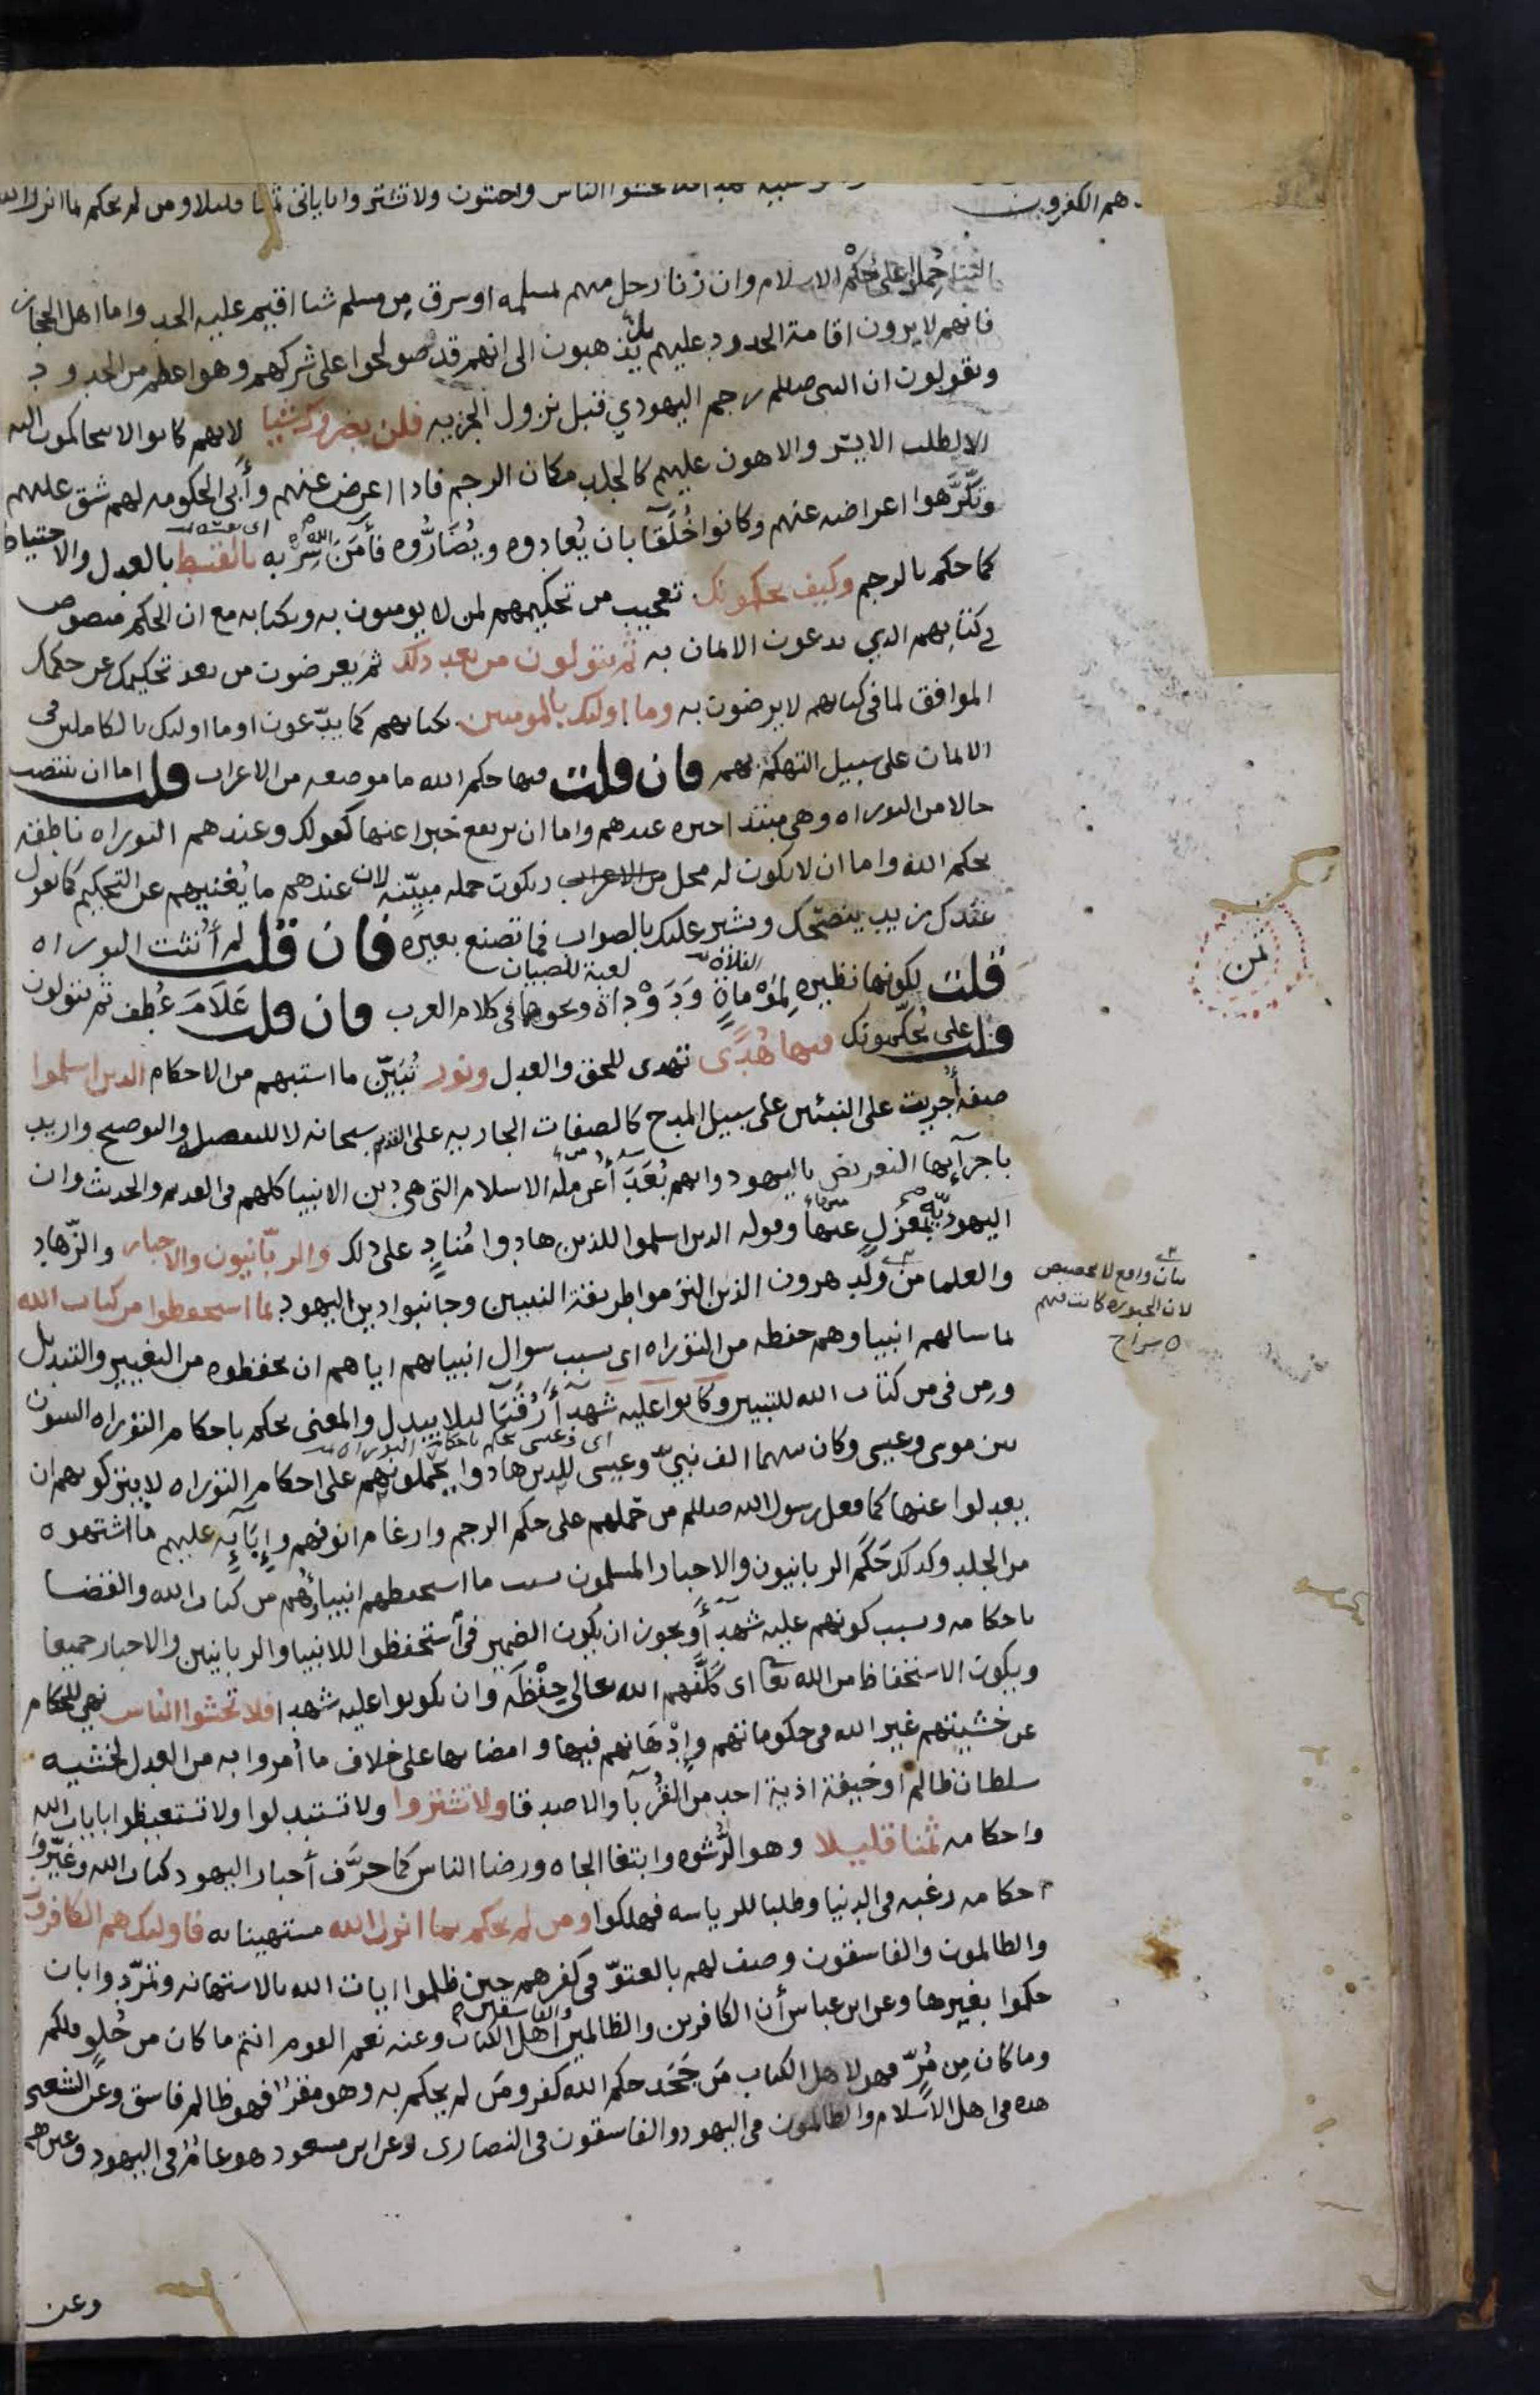 فلا تخشوا الناس واخشون ولا تشتروا باياتى ثمنا قليلا ومن لم يحكم بما انزل الله
هم الكفرون
الينا حُملوا على حُكْم الاسلام وان زنا رجل منهم بمسلمه او سرق مِن مسلم شيا اقيم عليه الحد واما اهل الحجاز
فانهم لا يرون اقامة الحدود عليهم يذهبون الى انهم قد صولحوا على شركهم وهو اعظم من الحدود
ويقولون ان النبى صللم رجم اليهودي قبل نزول الجزيه فلن يضروك شيا لانهم كانوا لا يتحاكمون اليه
الا لطلب الايسر والاهون عليهم كالجلد مكان الرجم فاذا اعرض عنهم وأبى الحكومه لهم شق عليهم
وتكَرَّهوا اعراضه عنهم وكانوا خُلَقآ بان يُعادوه ويُضَارُّوه فأمَنَ الله سِرْبه بالقسط بالعدل والاحتياط
كما حكم بالرجم وكيف يحكمونك تعجيب من تحكيمهم لمن لا يومنون به وبكتابه مع ان الحكم منصوص
فى كتابهم الذي يدعون الايمان به ثم يتولون من بعد ذلك ثم يعرضون من بعد تحكيمك عن حكمك
الموافق لما فى كتابهم لا يرضون به وما اولئك بالمومنين بكتابهم كما يدّعون او ما اولئك بالكاملين فى
الايمان على سبيل التهكم بهم فان قلت فيها حكم الله ما موضعه من الاعراب قلت اما ان ينتصب
حالا من التوراه وهى مبتدا خبره عندهم واما ان يرتفع خبرا عنها كقولك وعندهم التوراه ناطقة
بحكم الله واما ان لا يكون له محل من الاعراب ويكون جمله مبيّنه لان عندهم ما يُغنيهم عن التحكيم كما تقول
عندك زيد ينصحك ويشير عليك بالصواب فما تصنع بغيره فان قلت لم أُنثت التوراه
قلت لكونها نظيره لِمَوْماةٍ ودَوْداة ونحوها فى كلام العرب فان قلت عَلَامَ عُطف ثم يتولون
الفلاة
لعبة للصبيان
قلت على يُحكّمونك فيها هُدًى تهدى للحق والعدل ونور تُبَيّن ما استبهم من الاحكام الذين اسلموا
صفه أُجريت على النبئين على سبيل المدح كالصفات الجاريه على القديم سبحانه لا للتفصيل والتوضيح واريد
باجرآيها التعريض باليهود وانهم بُعَدَآ عن مله الاسلام التى هى دين الانبيا كلهم فى القديم والحديث وان
اليهوديّه بمَعْزِل عنها وقوله الذين اسلموا للذين هادوا مُنادٍ على ذلك والربّانيون والاحبار والزّهاد
والعلما من ولَد هرون الذين التزموا طريقة النبيين وجانبوا دين اليهود بما استحفظوا من كتاب الله
بيان واقع لا تخصيص
لان الحبوره كانت فيهم
سراج
بما سالهم انبياوهم حفظه من التوراه اى بسبب سوال انبيائهم اياهم ان يحفظوه من التغيير والتبديل
ومِن فى من كتاب الله للتبيين وكانوا عليه شهدآ رُقَبَآ ليلا يبدل والمعنى يحكم باحكام التوراه النبيون
بين موسى وعيسى وكان بينهما الف نبىّ وعيسى للذين هادوا يحملونهم على احكام التوراه لا يتركونهم ان
يعدلوا عنها كما فعل رسول الله صللم من حَملهم على حكم الرجم وارغام انوفهم وإبَآيه عليهم ما اشتهوه
من الجلد وكذلك حَكَم الربانيون والاحبار المسلمون بسبب ما استحفظهم انبياوهم من كتاب الله والقضا
باحكامه وبسبب كونهم عليه شهدآ ويجوز ان يكون الضمير فى استُحفظوا للانبيا والربانيين والاحبار جميعا
ويكون الاستحفاظ من الله تعا اى كَلَّفهم الله تعالى حِفْظَه وان يكونوا عليه شهدا فلا تخشوا الناس نهى للحكام
عن خشيتهم غير الله فى حكوماتهم وإدْهَانهم فيها وامضايها على خلاف ما أمروا به من العدل لخشيه
سلطان ظالم او خيفة اذية احد من القُربآ والاصدقا ولا تشتروا ولا تستبدلوا ولا تستعيضوا بايات الله
واحكامه ثمنا قليلا وهو الرُّشوه وابتغا الجاه ورضا الناس كما حرَّف أحبار اليهود كتاب الله وغيّروا
احكامه رغبه فى الدنيا وطلبا للرياسه فهلكوا ومن لم يحكم بما انزل الله مستهينا به فاولئك هم الكافرون
والظالمون والفاسقون وصف لهم بالعتوّ فى كفرهم حين ظلموا ايات الله بالاستهانه وتمرّدوا بان
حكموا بغيرها وعن ابن عباس أن الكافرين والظالمين والفاسقين أهل الكتاب وعنه نعم القوم انتم ما كان من حُلوٍ فلكم
وما كان مِن مُرّ فهو لاهل الكتاب مَن جَحَد حكم الله كفر ومَن لم يحكم به وهو مقرّ فهو ظالم فاسق وعن الشعبى
هذه فى اهل الاسلام والظالمون فى اليهود والفاسقون فى النصارى وعن ابن مسعود هو عامّ فى اليهود وغيرهم
وعن
ثمن